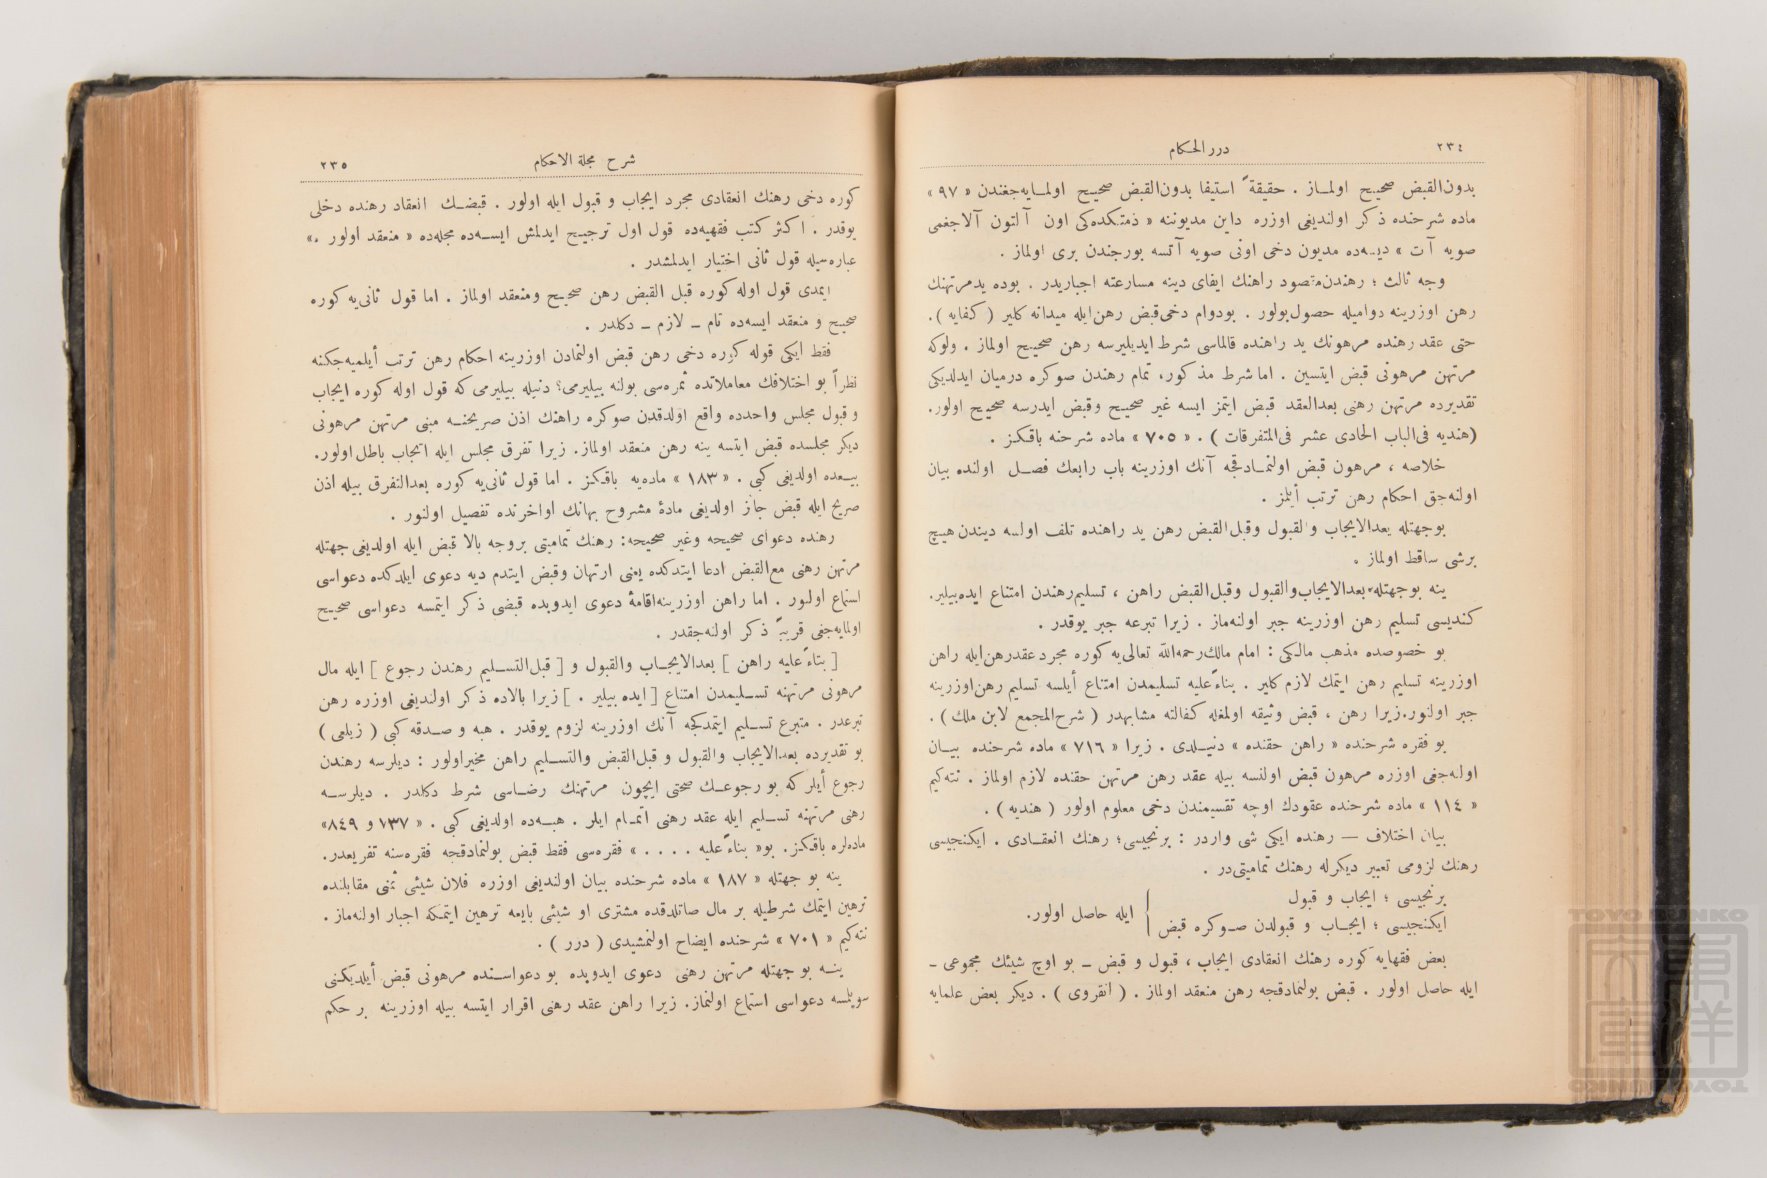 ٢٣٤
درر الحكام
بدون‌القبض صحيح اولماز . حقيقةً استيفا بدون‌القبض صحيح اولمايه‌جغندن « ٩٧ »
ماده شرحنده ذكر اولنديغى اوزره داين مديوننه « ذمتكده‌كى اون آلتون آلاجغمى
صويه آت » ديسه‌ده مديون دخى اونى صويه آتسه بورجندن برى اولماز .
وجه ثالث ؛ رهندن‌مقصود راهنك ايفاى دينه مسارعته اجباريدر . بوده يدمرتهنك
رهن اوزرينه دواميله حصول‌بولور . بودوام دخى‌قبض رهن‌ايله ميدانه كلير ( كفايه ) .
حتى عقد رهنده مرهونك يد راهنده قالماسى شرط ايديليرسه رهن صحيح اولماز . ولوكه
مرتهن مرهونى قبض ايتسين . اما شرط مذكور، تمام رهندن صوكره درميان ايدلديكى
تقديرده مرتهن رهنى بعدالعقد قبض ايتمز ايسه غير صحيح وقبض ايدرسه صحيح اولور.
(هنديه فى‌الباب الحادى عشر فى‌المتفرقات ) . « ٧٠٥ » ماده شرحنه باقكز .
خلاصه ، مرهون قبض اولنمادقجه آنك اوزرينه باب رابعك فصل اولنده بيان
اولنه‌جق احكام رهن ترتب أيلمز .
بوجهتله بعدالايجاب والقبول وقبل‌القبض رهن يد راهنده تلف اولسه ديندن هيچ
برشى ساقط اولماز .
ينه بوجهتله بعدالايجاب‌والقبول وقبل‌القبض راهن ، تسليم‌رهندن امتناع ايده‌بيلير.
كنديسى تسليم رهن اوزرينه جبر اولنه‌ماز . زيرا تبرعه جبر يوقدر .
بو خصوصده مذهب مالكى : امام مالك‌رحمه‌الله تعالى‌يه كوره مجرد عقدرهن‌ايله راهن
اوزرينه تسليم رهن ايتمك لازم كلير . بناءًعليه تسليمدن امتناع أيلسه تسليم رهن‌اوزرينه
جبر اولنور.زيرا رهن ، قبض وثيقه اولمغله كفالته مشابهدر ( شرح‌المجمع لابن ملك ) .
بو فقره شرحنده « راهن حقنده » دنيلدى . زيرا « ٧١٦ » ماده شرحنده بيان
اولنه‌جغى اوزره مرهون قبض اولنسه بيله عقد رهن مرتهن حقنده لازم اولماز . نته‌كيم
« ١١٤ » ماده شرحنده عقودك اوچه تقسيمندن دخى معلوم اولور ( هنديه ) .
بيان اختلاف — رهنده ايكى شى واردر : برنجيسى؛ رهنك انعقادى . ايكنجيسى
رهنك لزومى تعبير ديكرله رهنك تماميتى‌در .
برنجيسى ؛ ايجاب و قبول
ايكنجيسى ؛ ايجاب و قبولدن صوكره قبض } ايله حاصل اولور.
بعض فقهايه كوره رهنك انعقادى ايجاب ، قبول و قبض ـ بو اوچ شيئك مجموعى ـ
ايله حاصل اولور . قبض بولنمادقجه رهن منعقد اولماز . ( انقروى ) . ديكر بعض علمايه
شرح مجلة الاحكام
٢٣٥
كوره دخى رهنك انعقادى مجرد ايجاب و قبول ايله اولور . قبضك انعقاد رهنده دخلى
يوقدر . اكثر كتب فقهيه‌ده قول اول ترجيح ايدلمش ايسه‌ده مجله‌ده « منعقد اولور .»
عباره‌سيله قول ثانى اختيار ايدلمشدر .
ايمدى قول اوله كوره قبل القبض رهن صحيح ومنعقد اولماز . اما قول ثانى‌يه كوره
صحيح و منعقد ايسه‌ده تام ـ لازم ـ دكلدر .
فقط ايكى قوله كوره دخى رهن قبض اولنمادن اوزرينه احكام رهن ترتب أيلميه‌جكنه
نظراً بو اختلافك معاملاتده ثمره‌سى بولنه بيليرمى؟ دنيله بيليرمى‌كه قول اوله كوره ايجاب
و قبول مجلس واحدده واقع اولدقدن صوكره راهنك اذن صريحنه مبنى مرتهن مرهونى
ديكر مجلسده قبض ايتسه ينه رهن منعقد اولماز. زيرا تفرق مجلس ايله ايجاب باطل‌اولور.
بيعده اولديغى كبى . « ١٨٣ » ماده‌يه باقكز . اما قول ثانى‌يه كوره بعدالتفرق بيله اذن
صريح ايله قبض جائز اولديغى مادۀ مشروح بهانك اواخرنده تفصيل اولنور .
رهنده دعواى صحيحه وغير صحيحه: رهنك تماميتى بروجه بالا قبض ايله اولديغى جهتله
مرتهن رهنى مع‌القبض ادعا ايتدكده يعنى ارتهان وقبض ايتدم ديه دعوى ايلدكده دعواسى
استماع اولنور . اما راهن اوزرينه‌اقامۀ دعوى ايدوبده قبضى ذكر ايتمسه دعواسى صحيح
اولمايه‌جغى قريباً ذكر اولنه‌جقدر .
[ بناءًعليه راهن ] بعدالايجاب والقبول و [ قبل‌التسليم رهندن رجوع ] ايله مال
مرهونى مرتهنه تسليمدن امتناع [ ايده بيلير . ] زيرا بالاده ذكر اولنديغى اوزره رهن
تبرعدر . متبرع تسليم ايتمدكجه آنك اوزرينه لزوم يوقدر . هبه و صدقه كبى ( زيلعى )
بو تقديرده بعدالايجاب والقبول و قبل‌القبض والتسليم راهن مخيراولور : ديلرسه رهندن
رجوع أيلر كه بو رجوعك صحتى ايچون مرتهنك رضاسى شرط دكلدر . ديلرسه
رهنى مرتهنه تسليم ايله عقد رهنى اتمام ايلر . هبه‌ده اولديغى كبى . « ٧٣٧ و ٨٤٩»
ماده‌لره باقكز. بو« بناءًعليه . . . . » فقره‌سى فقط قبض بولنمادقجه فقره‌سنه تفريعدر.
ينه بو جهتله « ١٨٧ » ماده شرحنده بيان اولنديغى اوزره فلان شيئى ثمنى مقابلنده
ترهين ايتمك شرطيله بر مال صاتلدقده مشترى او شيئى بايعه ترهين ايتمكه اجبار اولنه‌ماز .
نته‌كيم « ٧٠١ » شرحنده ايضاح اولنمشيدى ( درر ) .
ينه بو جهتله مرتهن رهنى دعوى ايدوبده بو دعواسنده مرهونى قبض أيلديكنى
سويلمسه دعواسى استماع اولنماز. زيرا راهن عقد رهنى اقرار ايتسه بيله اوزرينه بر حكم
TOYO BUNKO